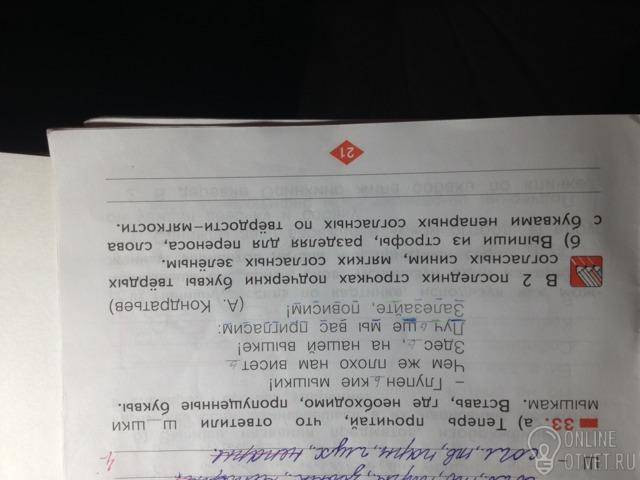 согл, тв, парн, глух, непарн.
33. а) Теперь прочитай, что ответили ш_шки
мышкам. Вставь, где необходимо, пропущенные буквы.
– Глупен ь кие мышки!
Чем же плохо нам висет ь
Здес ь, на нашей вышке!
Луч ь ше мы вас пригласим:
Залезайте, повисим! (А. Кондратьев)
В 2 последних строчках подчеркни буквы твёрдых
согласных синим, мягких согласных зелёным.
б) Выпиши из строфы, разделяя для переноса, слова
с буквами непарных согласных по твёрдости-мягкости.
21
ONLINE
OTVET.RU